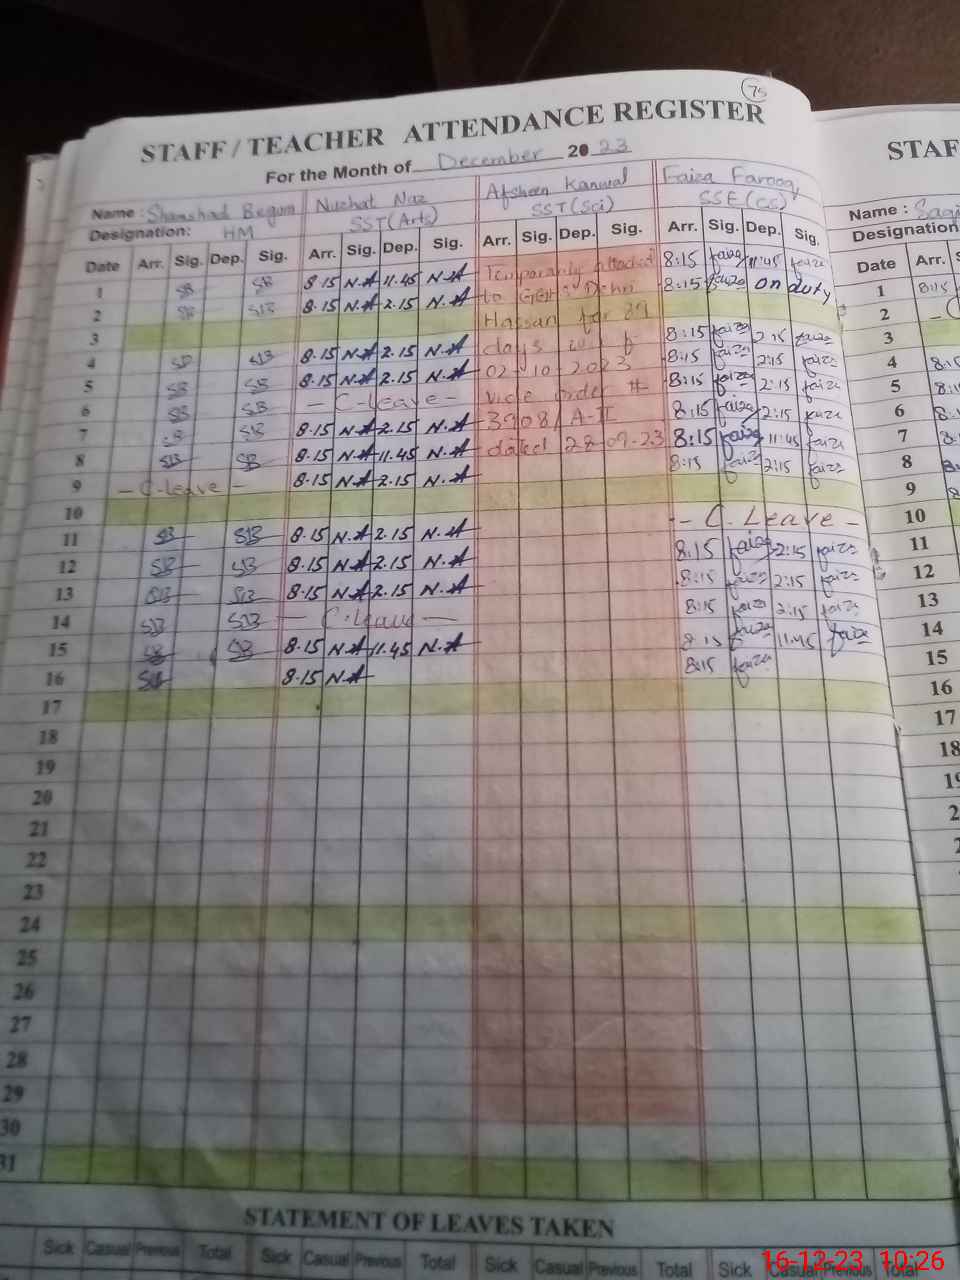 75
STAFF / TEACHER ATTENDANCE REGISTER
For the Month of December 2023
Name : Shamshad Begum Nuzhat Naz Afsheen Kanwal Faiza Farooq
Designation: HM SST(Arts) SST(Sci) SSE(CS)
Date Arr. Sig. Dep. Sig. Arr. Sig. Dep. Sig. Arr. Sig. Dep. Sig. Arr. Sig. Dep. Sig.
1 SB SB 8.15 N.A 11.45 N.A Temporarily attached 8:15 faiza 11:45 faiza
2 SB SB 8.15 N.A 2.15 N.A to Dehri 8:15 faiza on duty
3 Hassan for 89
4 SB SB 8.15 N.A 2.15 N.A days w.e.f 8:15 faiza 2:15 faiza
5 SB SB 8.15 N.A 2.15 N.A 02-10-2023 8:15 faiza 2:15 faiza
6 SB SB - C-Leave - vide order # 8:15 faiza 2:15 faiza
7 SB SB 8.15 N.A 2.15 N.A 3908/A-II 8:15 faiza 2:15 faiza
8 SB SB 8.15 N.A 11.45 N.A dated 28-09-23 8:15 faiza 11:45 faiza
9 - C-leave - 8.15 N.A 2.15 N.A 8:15 faiza 2:15 faiza
10
11 SB SB 8.15 N.A 2.15 N.A - C. Leave -
12 SB SB 8.15 N.A 2.15 N.A 8:15 faiza 2:15 faiza
13 SB SB 8.15 N.A 2.15 N.A 8:15 faiza 2:15 faiza
14 SB SB - C.Leave - 8:15 faiza 2:15 faiza
15 SB SB 8.15 N.A 11.45 N.A 8:15 faiza 11:45 faiza
16 SB 8.15 N.A 8:15 faiza
17
18
19
20
21
22
23
24
25
26
27
28
29
30
31
STATEMENT OF LEAVES TAKEN
Sick Casual Previous Total Sick Casual Previous Total Sick Casual Previous Total Sick Casual Previous Total
STAF
Name : Sagi
Designation
Date Arr.
1 8:15
2
3
4
5
6
7
8
9
10
11
12
13
14
15
16
17
18
16-12-23 10:26